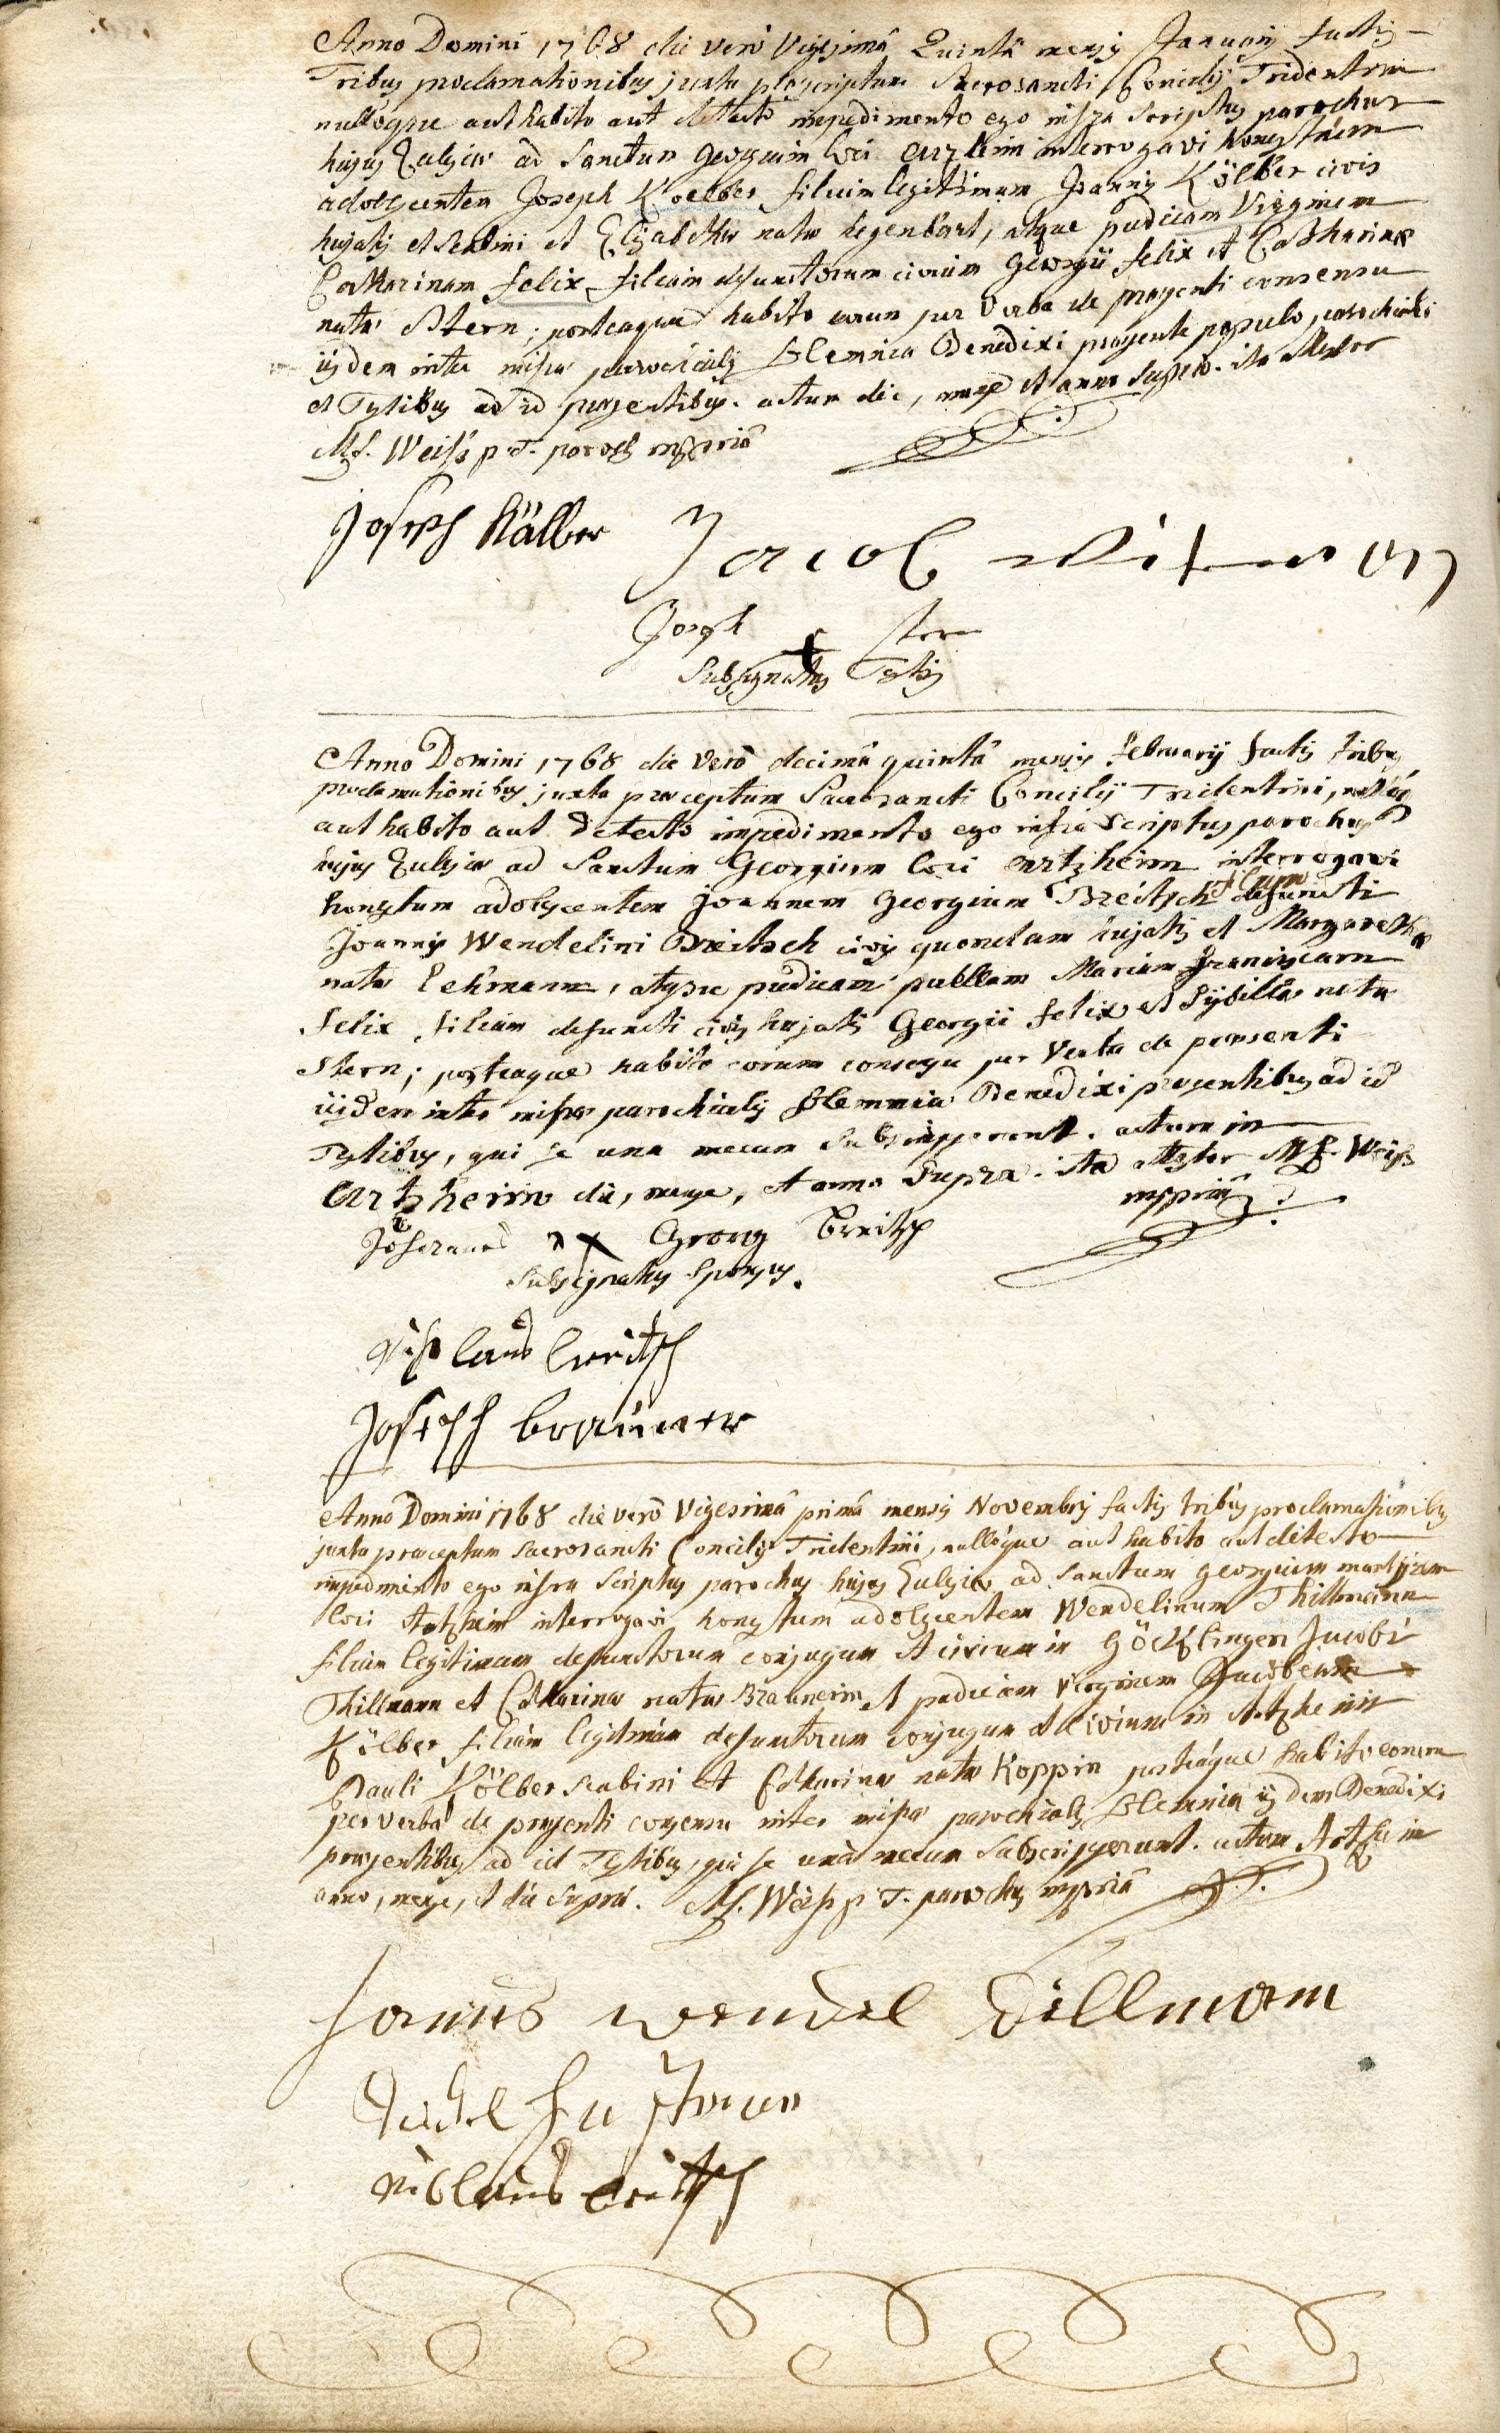 Anno Domini 1768 die verò Vigesimâ Quintâ mensis Januarij factis
Tribus proclamationibus juxta præscriptum Sacrosancti Concilij Tridentini
nullôque aut habito aut detecto impedimento ego infra scriptus parochus
hujus Eclesiæ ad Sanctum Georgium loci arzheim interrogavi honestum
adolescentem Joseph Koelber filium legitimum Joannis Kölber civis
hujatis et scabini et Elisabethæ natæ Hegenbart, atque pudicam Virginem
Catharinam felix filiam defunctorum civium Georgii felix et Catharinæ
natæ Stern; posteaque habito eorum per Verba de præsenti consensu
iisdem inter missæ parochialis solemnia Benedixi præsente populo parochiali
et Testibus ad id præsentibus. actum die, mense et anno supra. ita testor
Mf. Weiss p. T. paroch mppriâ
Joseph Kälber Jacob
Joseph Stern
Subsignatus Testis
Anno Domini 1768 die Verò decimâ quintâ mensis februarij factis tribus
proclamationibus juxta præceptum Sacrosancti Concilij Tridentini, nullôque
aut habito aut detecto impedimento ego infra scriptus parochus
hujus Eclesiæ ad Sanctum Georgium loci artzheim interrogavi
honestum adolescentem Joannem Georgium Breitsch filium defuncti
Joannis Wendelini Breitsch civis quondam hujatis et Margarethæ
natæ Lehmann, atque pudicam puellam Mariam Franciscam
felix filiam defuncti civis hujatis Georgii felix et Sybillæ natæ
Stern; posteaque habito eorum consensu per Verba de præsenti
iisdem inter missæ parochialis solemnia Benedixi præsentibus ad id
Testibus, qui se una mecum subscripserunt. actum in
artzheim die, mense, et anno supra. ita testor Mf. Weiss
mppriâ
Johannes Georg Breitsch
Subsignatus sponsus.
Joseph brauner
Anno Domini 1768 die verò Vigesimâ primâ mensis Novembris factis tribus proclamationibus
juxta præceptum sacrosancti Concilij Tridentini, nullôque aut habito aut detecto
impedimento ego infra scriptus parochus hujus Eclesiæ ad Sanctum georgium martyrem
loci Artzheim interrogavi honestum adolescentem Wendelinum Thillmann
filium legitimum defunctorum conjugum et civium in Göcklingen Jacobi
Thillmann et Catharinæ natæ Braunerin et pudicam virginem Jacobeam
Kölber filiam legitimam defunctorum conjugum et civium in Artzheim
Pauli Kölber scabini et Catharinæ natæ Koppin posteáque habito eorum
per verba de præsenti consensu inter missæ parochialis solemnia iisdem Benedixi
præsentibus ad id Testibus, qui se unà mecum subscripserunt. actum Artzheim
anno, mense, et die suprà. Mf. Weiss p. T. parochus mppriâ
hannes wendel Dillmann